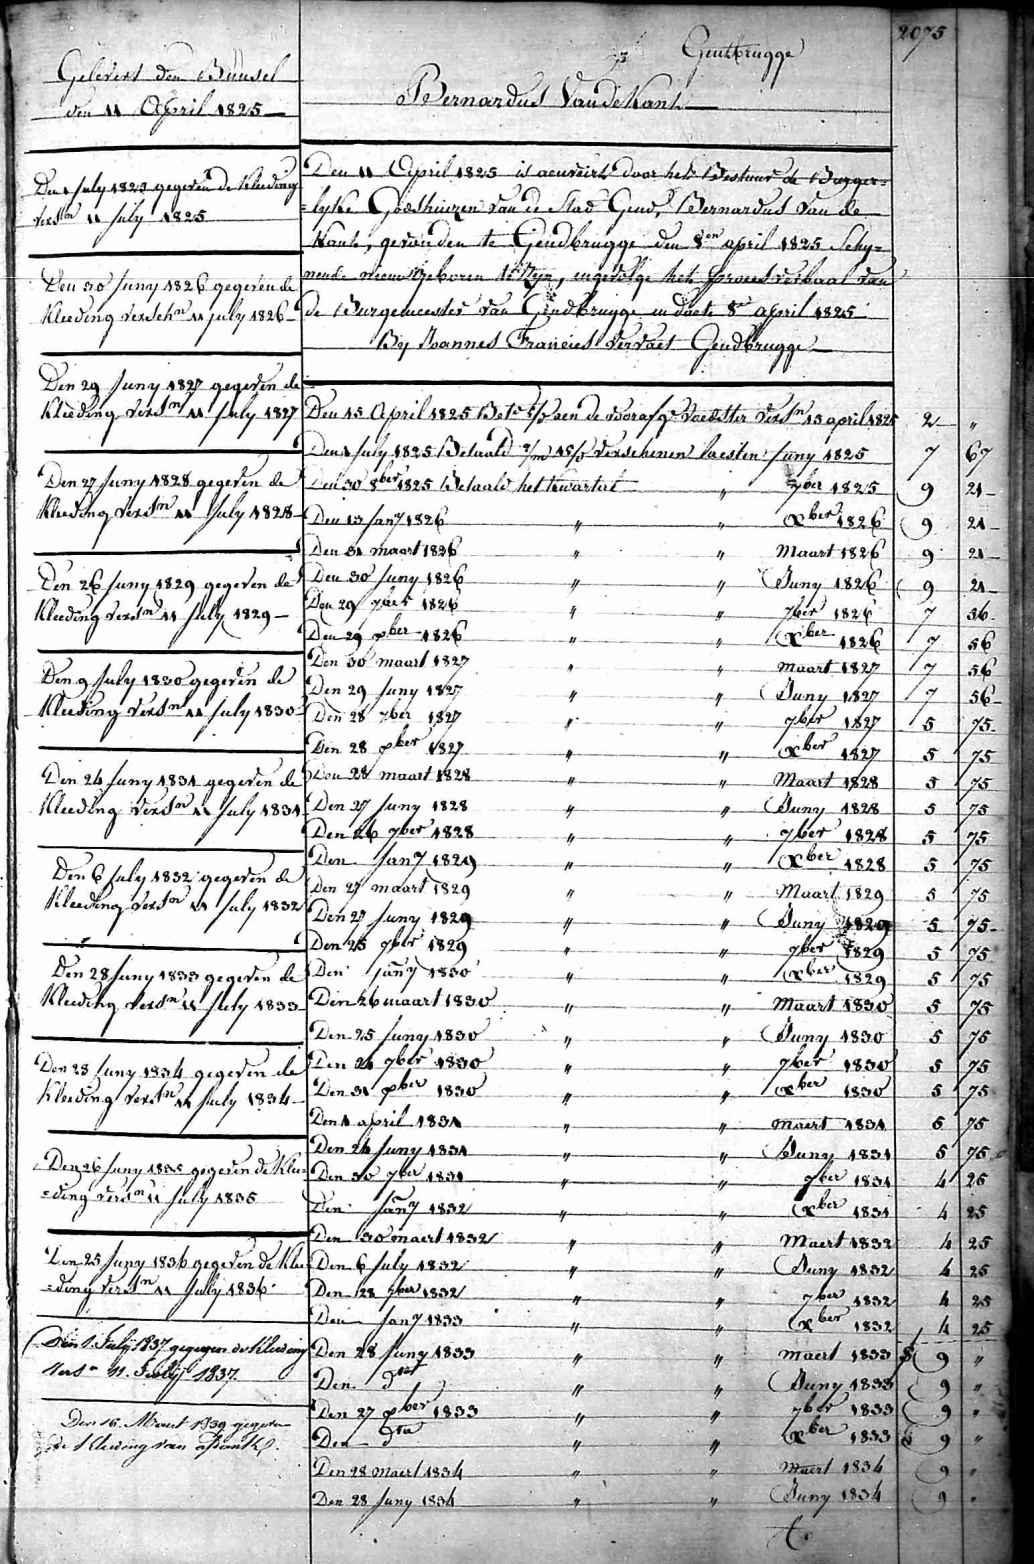 2075
Gentbrugge
Gelevert den Bunsel
den 11 April 1825
Bernardus Vande Kant
Den 1 July 1825 gegeven de kleeding
verstn 11 July 1825
Den 30 Juny 1826 gegeven de
Kleeding verschn 11 July 1826
Den 29 Juny 1827 gegeven de
Kleeding verstn 11 July 1827
Den 27 Juny 1828 gegeven de
Kleeding verstn 11 July 1828
Den 26 Juny 1829 gegeven de
Kleeding verstn 11 July 1829
Den 9 July 1830 gegeven de
Kleeding verstn 11 July 1830
Den 24 Juny 1831 gegeven de
Kleeding verstn 11 July 1831
Den 6 July 1832 gegeven de
Kleeding verstn 11 July 1832
Den 28 Juny 1833 gegeven de
Kleeding verstn 11 July 1833
Den 28 Juny 1834 gegeven de
Kleeding verstn 11 July 1834
Den 26 Juny 1835 gegeven de Klee=
=ding verstn 11 July 1835
Den 25 Juny 1836 gegeven de Klee
=ding verstn 11 July 1836
Den 1 July 1837 gegeven de Kleeding
vers n 11 July 1837
Den 16 Maert 1839 gegeven
de Kleeding van
Den 11 April 1825 is door het Bestuur de Burger=
=lyke Godshuizen van de Stad Gend, Bernardus van de
Kant, gevonden te Gendbrugge den 8en april 1825 Schy=
nende nieuw geboren te Zyn, ingevolge het proces verbaal van
de Burgemeester van Gendbrugge in date 8en april 1825
By Joannes Francies Vervaet Gendbrugge
Den 15 April 1825 aen de voorafge Voedster verstn 15 april 1825 2 "
Den 1 July 1825 Betaald verschenen laesten Juny 1825 7 67
Den 30 8ber 1825 Betaald het kwartert " 7ber 1825 9 21
Den 13 Jany 1826 " " Xber 1826 9 21
Den 31 maart 1826 " " Maart 1826 9 21
Den 30 Juny 1826 " " Juny 1826 9 21
Den 29 7ber 1826 " " 7ber 1826 7 56
Den 29 xber 1826 " " Xber 1826 7 56
Den 30 maart 1827 " " maart 1827 7 56
Den 29 Juny 1827 " " Juny 1827 7 56
Den 28 7ber 1827 " " 7ber 1827 5 75
Den 28 xber 1827 " " Xber 1827 5 75
Den 28 maart 1828 " " Maart 1828 5 75
Den 27 Juny 1828 " " Juny 1828 5 75
Den 26 7ber 1828 " " 7ber 1828 5 75
Den Jany 1829 " " Xber 1828 5 75
Den 27 maart 1829 " " Maart 1829 5 75
Den 27 Juny 1829 " " Juny 1829 5 75
Den 25 7ber 1829 " " 7ber 1829 5 75
Den Jany 1830 " " Xber 1829 5 75
Den 26 maart 1830 " " Maart 1830 5 75
Den 25 Juny 1830 " " Juny 1830 5 75
Den 24 7ber 1830 " " 7ber 1830 5 75
Den 31 xber 1830 " " Xber 1830 5 75
Den 1 april 1831 " " maert 1831 5 75
Den 24 Juny 1831 " " Juny 1831 5 75
Den 30 7ber 1831 " " 7ber 1831 4 25
Den Jany 1832 " " Xber 1831 4 25
Den 30 maert 1832 " " Maert 1832 4 25
Den 6 July 1832 " " Juny 1832 4 25
Den 28 7ber 1832 " " 7ber 1832 4 25
Den Jany 1833 " " Xber 1832 4 25
Den 28 Juny 1833 " " Maert 1833 9 "
Den dto " " Juny 1833 9 "
Den 27 xber 1833 " " 7ber 1833 9 "
Den dto " " Xber 1833 9 "
Den 28 Maert 1834 " " Maert 1834 9 "
Den 28 Juny 1834 " " Juny 1834 9 "